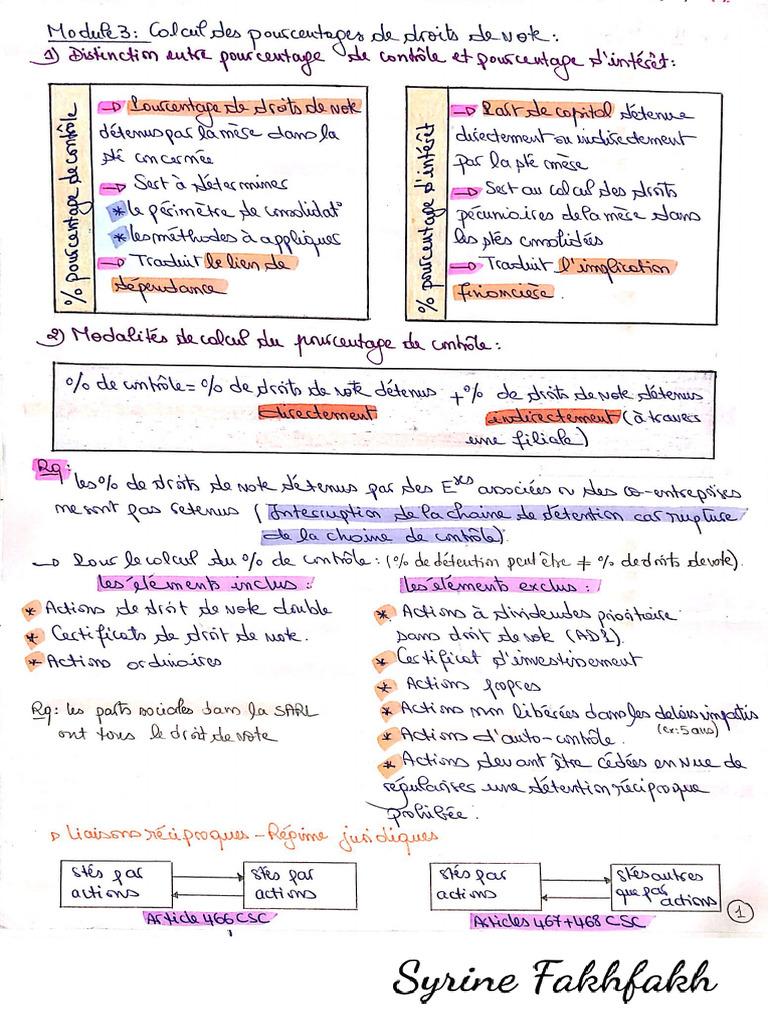 Module 3: Calcul des pourcentages de droits de vote:
1) Distinction entre pourcentage de contrôle et pourcentage d'intérêt:
% pourcentage de contrôle
→ Pourcentage de droits de vote
détenus par la mère dans la
sté concernée
→ Sert à déterminer
* le périmètre de consolidat°
* les méthodes à appliquer
→ Traduit le lien de
dépendance
% pourcentage d'intérêt
→ Part de capital détenue
directement ou indirectement
par la sté mère
→ Sert au calcul des droits
pécuniaires de la mère dans
les stés consolidés
→ Traduit l'implication
financière.
2) Modalités de calcul du pourcentage de contrôle:
% de contrôle = % de droits de vote détenus + % de droits de vote détenus
directement indirectement (à travers
une filiale)
Rq:
les % de droits de vote détenus par des Eses associées ou des co-entreprises
ne sont pas retenus (Interruption de la chaine de détention car rupture
de la chaine de contrôle).
→ Pour le calcul du % de contrôle: (% de détention peut être ≠ % de droits de vote).
les éléments inclus:
* Actions de droit de vote double
* Certificats de droit de vote.
* Actions ordinaires
Rq: les parts sociales dans la SARL
ont tous le droit de vote
les éléments exclus:
* Actions à dividendes prioritaire
sans droit de vote (ADP).
* Certificat d'investissement
* Actions propres
* Actions non libérées dans les délais impartis
(ex: 5 ans)
* Actions d'auto-contrôle.
* Actions devant être cédées en vue de
régulariser une détention réciproque
prohibée.
▹ Liaisons réciproques - Régime juridiques
stés par
actions
stés par
actions
Article 466 CSC
stés par
actions
stés autres
que par
actions
Articles 467+468 CSC
1
Syrine Fakhfakh